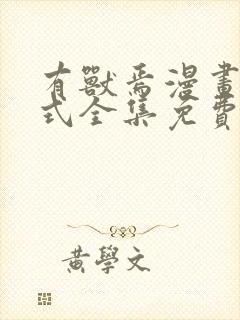 有獸焉漫畫
式全集免費
黃學文